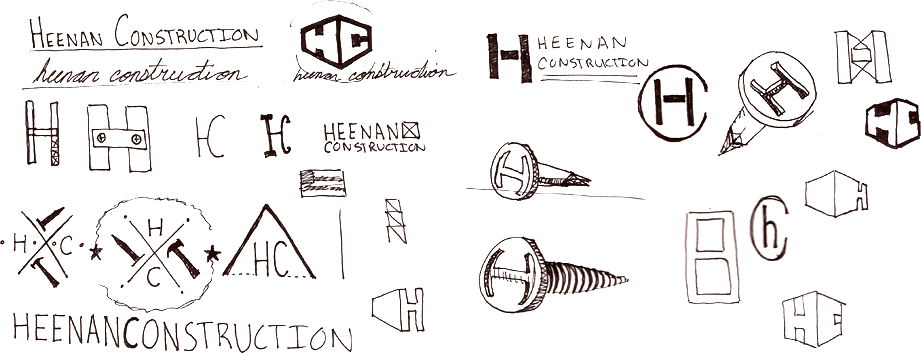 HEENAN CONSTRUCTION
heenan construction
HC
heenan construction
H HEENAN
CONSTRUCTION
H
H
H
HC
H
H
HC
HC
HEENAN
CONSTRUCTION
H
H
H C
H
C
HC
h
H
H
HC
HEENANCONSTRUCTION